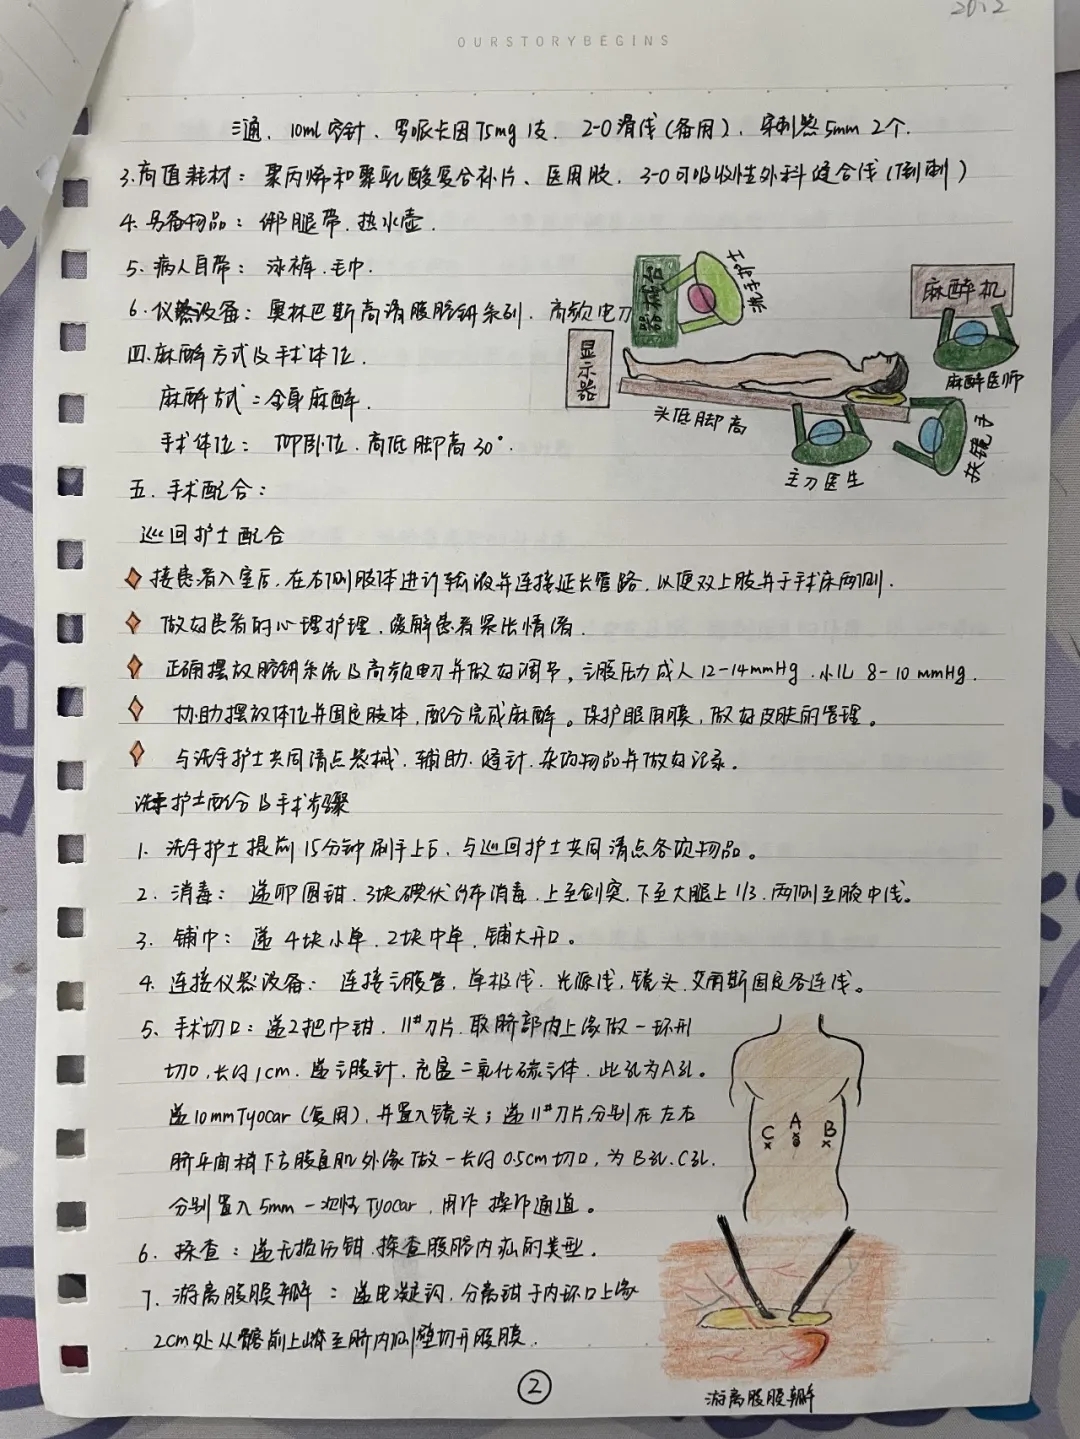 20.2
OURSTORYBEGINS
三通、10ml空针、罗哌卡因75mg 1支、2-0滑线(备用)、穿刺器5mm 2个.
3.高值耗材：聚丙烯和聚乳酸复合补片、医用胶、3-0可吸收性外科缝合线(倒刺)
4.另备物品：绑腿带.热水壶.
5.病人自带：泳裤.毛巾.
6.仪器设备：奥林巴斯高清腹腔镜系列、高频电刀
器械台
洗手护士
麻醉机
麻醉医师
显示器
头低脚高
主刀医生
扶镜手
四.麻醉方式及手术体位.
麻醉方式：全身麻醉.
手术体位：仰卧位.高低脚高30°.
五.手术配合：
巡回护士配合
接患者入室后,在右侧肢体进行输液并连接延长管路,以便双上肢并于手术床两侧.
做好患者的心理护理,缓解患者紧张情绪.
正确摆放腔镜系统及高频电刀并做好调节,气腹压力成人12-14mmHg.小儿8-10mmHg.
协助摆放体位并固定肢体,配合完成麻醉。保护眼角膜,做好皮肤的管理。
与洗手护士共同清点器械.辅助.缝针.杂项物品并做好记录。
洗手护士配合及手术步骤
1.洗手护士提前15分钟刷手上台,与巡回护士共同清点各项物品。
2.消毒：递卵圆钳.3块碘伏纱布消毒.上至剑突.下至大腿上1/3.两侧至腋中线。
3.铺巾：递4块小单.2块中单.铺大开口。
4.连接仪器设备：连接气腹管.单极线.光源线,镜头.艾丽斯固定各连线。
5.手术切口：递2把巾钳.11#刀片.取脐部内上缘做一环形
切口,长约1cm.递气腹针,充盈二氧化碳气体.此孔为A孔。
递10mmTyocar(复用),并置入镜头；递11#刀片,分别在左右
脐平面稍下方腹直肌外缘做一长约0.5cm切口,为B孔.C孔.
分别置入5mm一次性Tyocar,用作操作通道。
C A B
6.探查：递无损伤钳.探查腹腔内疝的类型。
7.游离腹膜瓣：递电凝钩,分离钳于内环口上缘
2cm处从髂前上嵴至脐内侧壁切开腹膜.
游离腹膜瓣
2